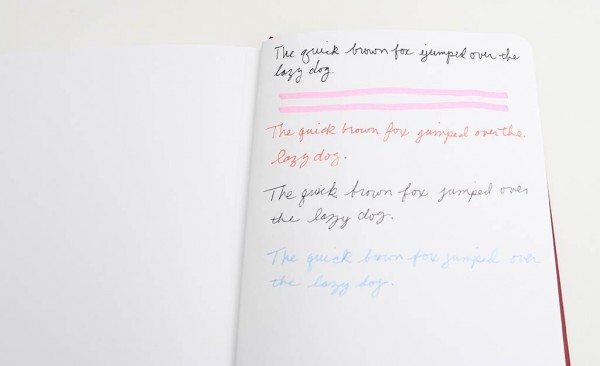 The quick brown fox jumped over the
lazy dog.
The quick brown fox jumped over the
lazy dog.
The quick brown fox jumped over
the lazy dog.
The quick brown fox jumped over
the lazy dog.